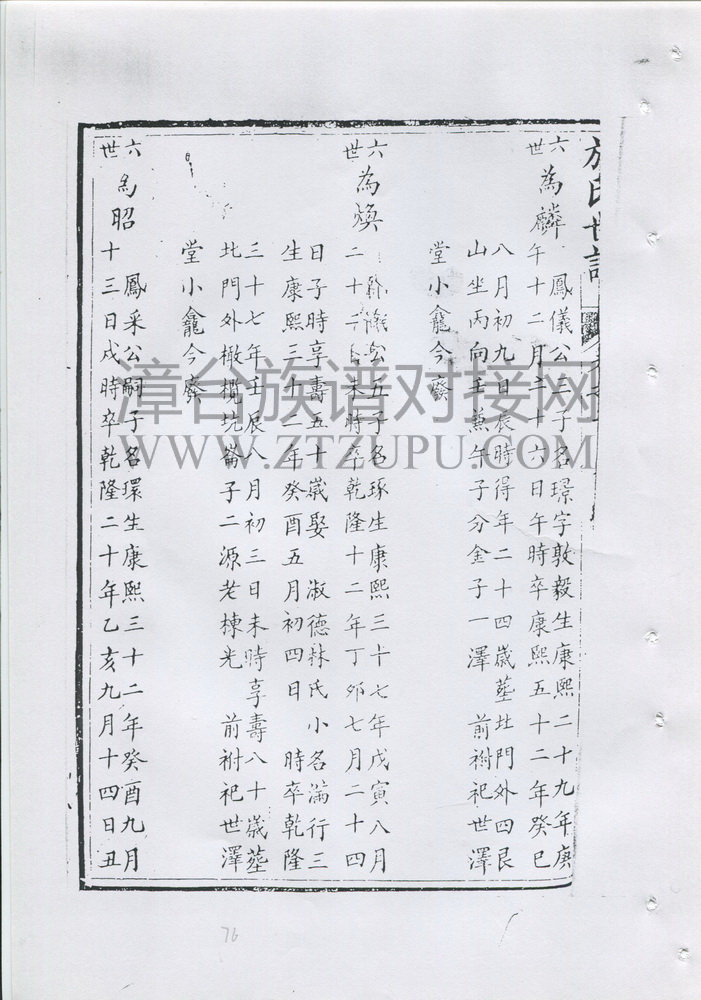 六世 為麟
鳳儀公三子名璟字敦毅生康熙二十九年庚
午十二月二十六日午時卒康熙五十二年癸巳
八月初九日辰時得年二十四歲墓北門外四艮
山坐丙向壬兼午子分金子一澤 前祔祀世澤
堂小龕今廢
六世 為煥
公五子名琢生康熙三十七年戊寅八月
二十二日未時卒乾隆十二年丁卯七月二十四
日子時享壽五十歲娶 淑德林氏小名滿行三
生康熙三十二年癸酉五月初四日 時卒乾隆
三十七年壬辰八月初三日未時享壽八十歲墓
北門外橄欖坑崙子二源老棟光 前祔祀世澤
堂小龕今廢
六世 為昭
鳳采公嗣子名環生康熙三十二年癸酉九月
十三日戌時卒乾隆二十年乙亥九月十四日丑
漳台族谱对接网
WWW.ZTZUPU.COM
76